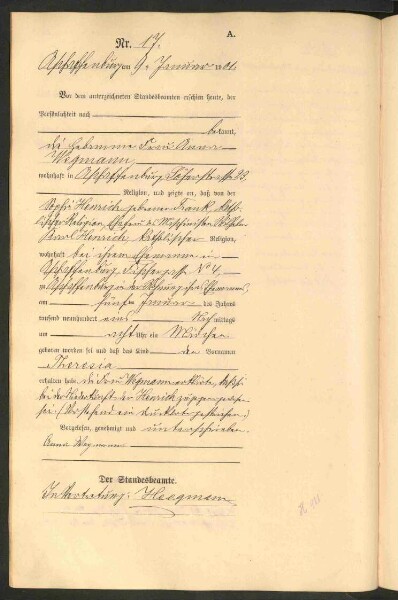 A.
Nr. 17.
Aschaffenburg am 9. Januar 1901.
Vor dem unterzeichneten Standesbeamten erschien heute, der
Persönlichkeit nach
bekannt,
die Hebamme Frau Anna
Wegmann
wohnhaft in Aschaffenburg
Religion, und zeigte an, daß von der
Sophie Henrich geborener Frank, katho-
lischer Religion, Ehefrau des Maschinisten
Karl Henrich, katholischer Religion,
wohnhaft bei ihrem Ehemanne in
Aschaffenburg No 4,
zu Aschaffenburg in der Wohnung ihres Ehemannes
am fünften Januar des Jahres
tausend neunhundert eins Nachmittags
um acht Uhr ein Mädchen
geboren worden sei und daß das Kind den Vornamen
Theresia
erhalten habe. die Frau Wegmann erklärte, daß sie
bei der Niederkunft der Henrich zugegen gewesen
sei. (Vorstehend ein Druckwort gestrichen.)
Vorgelesen, genehmigt und unterschrieben
Anna Wegmann
Der Standesbeamte.
In Vertretung: Heegmann